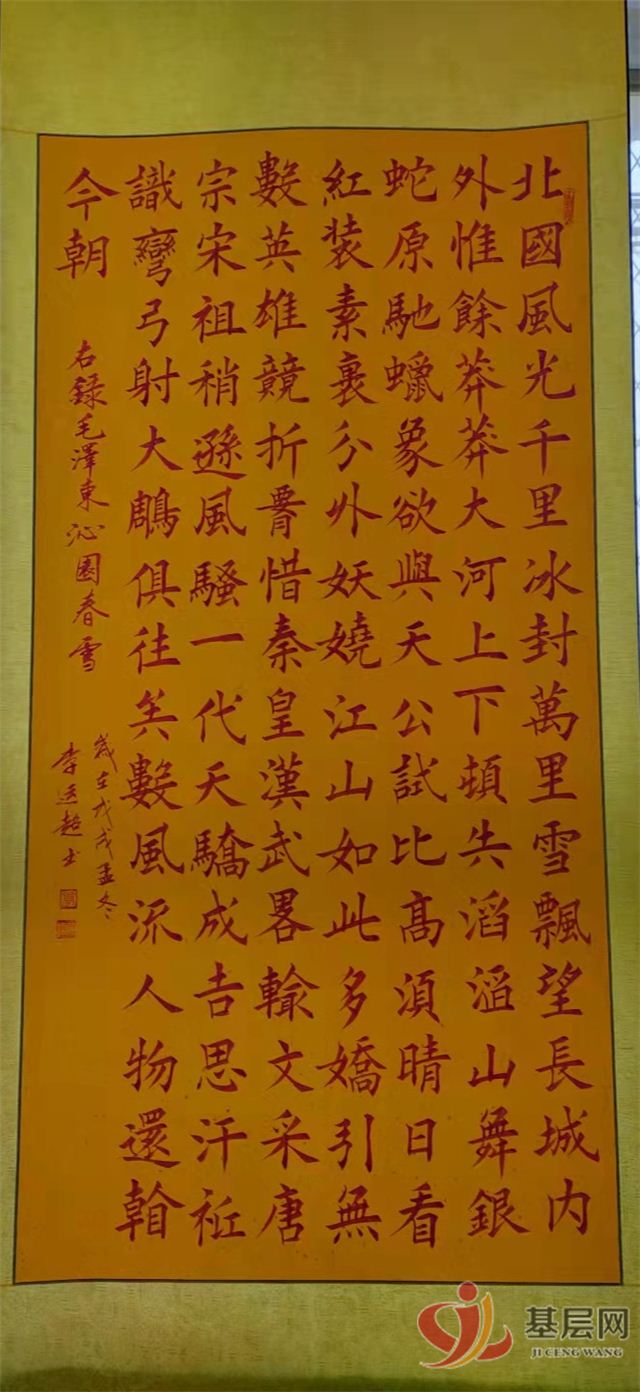 北國風光千里冰封萬里雪飄望長城内
外惟餘莽莽大河上下頓失滔滔山舞銀
蛇原馳蠟象欲與天公試比髙湏晴日看
紅装素裹分外妖嬈江山如此多嬌引無
數英雄競折腰惜秦皇漢武畧輸文采唐
宗宋祖稍遜風騷一代天驕成吉思汗祗
識彎弓射大鵰俱往矣數風流人物還看
今朝
右録毛澤東沁園春雪
歲在戊戌孟冬
李运超书
基层网
JI CENG WANG